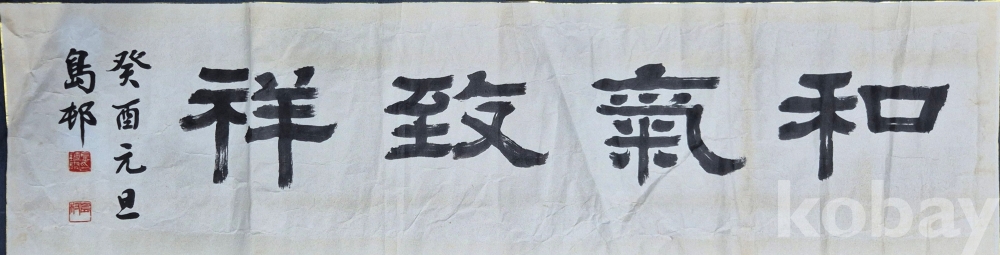 和氣致祥
癸酉元旦
島邨
kobay